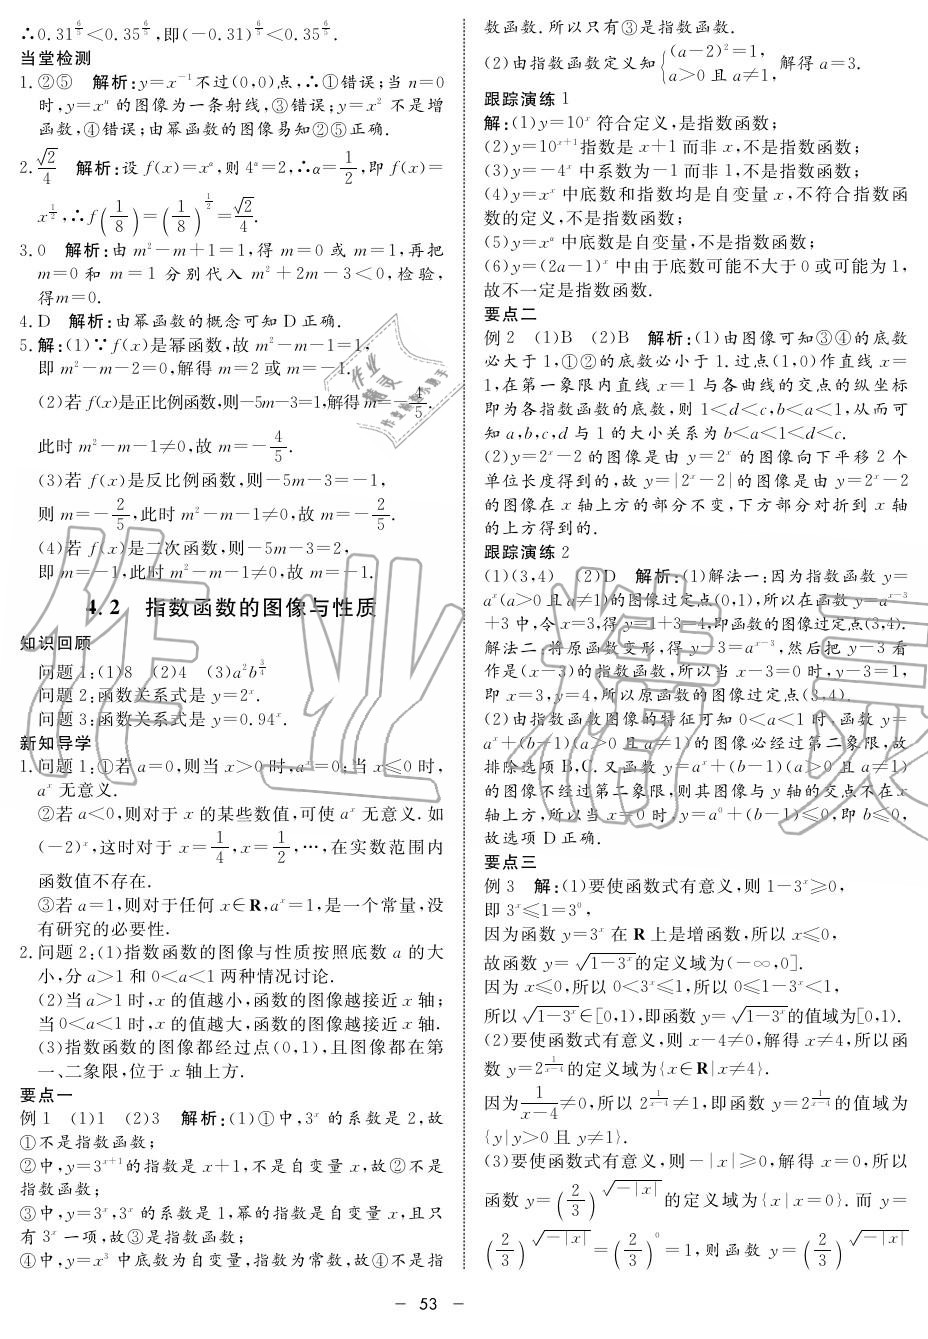 ∴0.31^{6/5}<0.35^{6/5},即(-0.31)^{6/5}<0.35^{6/5}.
当堂检测
1.②⑤ 解析:y=x^{-1}不过(0,0)点,∴①错误;当 n=0
时,y=x^n 的图像为一条射线,③错误;y=x^2 不是增
函数,④错误;由幂函数的图像易知②⑤正确.
2.√2/4 解析:设 f(x)=x^α,则 4^α=2,∴α=1/2,即 f(x)=
x^{1/2},∴f(1/8)=(1/8)^{1/2}=√2/4.
3.0 解析:由 m^2-m+1=1,得 m=0 或 m=1,再把
m=0 和 m=1 分别代入 m^2+2m-3<0,检验,
得m=0.
4.D 解析:由幂函数的概念可知 D 正确.
5.解:(1)∵f(x)是幂函数,故 m^2-m-1=1,
即 m^2-m-2=0,解得 m=2 或 m=-1.
(2)若 f(x)是正比例函数,则-5m-3=1,解得 m=-4/5.
此时 m^2-m-1≠0,故 m=-4/5.
(3)若 f(x)是反比例函数,则-5m-3=-1,
则 m=-2/5,此时 m^2-m-1≠0,故 m=-2/5.
(4)若 f(x)是二次函数,则-5m-3=2,
即 m=-1,此时 m^2-m-1≠0,故 m=-1.
4.2 指数函数的图像与性质
知识回顾
问题 1:(1)8 (2)4 (3)a^2b^{3/4}
问题 2:函数关系式是 y=2^x.
问题 3:函数关系式是 y=0.94^x.
新知导学
1.问题 1:①若 a=0,则当 x>0 时,a^x=0;当 x≤0 时,
a^x 无意义.
②若 a<0,则对于 x 的某些数值,可使 a^x 无意义.如
(-2)^x,这时对于 x=1/4,x=1/2,…,在实数范围内
函数值不存在.
③若 a=1,则对于任何 x∈R,a^x=1,是一个常量,没
有研究的必要性.
2.问题 2:(1)指数函数的图像与性质按照底数 a 的大
小,分 a>1 和 0<a<1 两种情况讨论.
(2)当 a>1 时,x 的值越小,函数的图像越接近 x 轴;
当 0<a<1 时,x 的值越大,函数的图像越接近 x 轴.
(3)指数函数的图像都经过点(0,1),且图像都在第
一、二象限,位于 x 轴上方.
要点一
例 1 (1)1 (2)3 解析:(1)①中,3^x 的系数是 2,故
①不是指数函数;
②中,y=3^{x+1}的指数是 x+1,不是自变量 x,故②不是
指数函数;
③中,y=3^x,3^x 的系数是 1,幂的指数是自变量 x,且只
有 3^x 一项,故③是指数函数;
④中,y=x^3 中底数为自变量,指数为常数,故④不是指
数函数.所以只有③是指数函数.
(2)由指数函数定义知{(a-2)^2=1, a>0 且 a≠1, 解得 a=3.
跟踪演练 1
解:(1)y=10^x 符合定义,是指数函数;
(2)y=10^{x+1}指数是 x+1 而非 x,不是指数函数;
(3)y=-4^x 中系数为-1 而非 1,不是指数函数;
(4)y=x^x 中底数和指数均是自变量 x,不符合指数函
数的定义,不是指数函数;
(5)y=x^α 中底数是自变量,不是指数函数;
(6)y=(2a-1)^x 中由于底数可能不大于 0 或可能为 1,
故不一定是指数函数.
要点二
例 2 (1)B (2)B 解析:(1)由图像可知③④的底数
必大于 1,①②的底数必小于 1.过点(1,0)作直线 x=
1,在第一象限内直线 x=1 与各曲线的交点的纵坐标
即为各指数函数的底数,则 1<d<c,b<a<1,从而可
知 a,b,c,d 与 1 的大小关系为 b<a<1<d<c.
(2)y=2^x-2 的图像是由 y=2^x 的图像向下平移 2 个
单位长度得到的,故 y=|2^x-2|的图像是由 y=2^x-2
的图像在 x 轴上方的部分不变,下方部分对折到 x 轴
的上方得到的.
跟踪演练 2
(1)(3,4) (2)D 解析:(1)解法一:因为指数函数 y=
a^x(a>0 且 a≠1)的图像过定点(0,1),所以在函数 y=a^{x-3}
+3 中,令 x=3,得 y=1+3=4,即函数的图像过定点(3,4).
解法二:将原函数变形,得 y-3=a^{x-3},然后把 y-3 看
作是(x-3)的指数函数,所以当 x-3=0 时,y-3=1,
即 x=3,y=4,所以原函数的图像过定点(3,4).
(2)由指数函数图像的特征可知 0<a<1 时,函数 y=
a^x+(b-1)(a>0 且 a≠1)的图像必经过第二象限,故
排除选项 B,C.又函数 y=a^x+(b-1)(a>0 且 a≠1)
的图像不经过第二象限,则其图像与 y 轴的交点不在 x
轴上方,所以当 x=0 时,y=a^0+(b-1)≤0,即 b≤0,
故选项 D 正确.
要点三
例 3 解:(1)要使函数式有意义,则 1-3^x≥0,
即 3^x≤1=3^0,
因为函数 y=3^x 在 R 上是增函数,所以 x≤0,
故函数 y=√(1-3^x)的定义域为(-∞,0].
因为 x≤0,所以 0<3^x≤1,所以 0≤1-3^x<1,
所以√(1-3^x)∈[0,1),即函数 y=√(1-3^x)的值域为[0,1).
(2)要使函数式有意义,则 x-4≠0,解得 x≠4,所以函
数 y=2^{1/(x-4)}的定义域为{x∈R|x≠4}.
因为1/(x-4)≠0,所以 2^{1/(x-4)}≠1,即函数 y=2^{1/(x-4)}的值域为
{y|y>0 且 y≠1}.
(3)要使函数式有意义,则-|x|≥0,解得 x=0,所以
函数 y=(2/3)^{√(-|x|)}的定义域为{x|x=0}.而 y=
(2/3)^{√(-|x|)}=(2/3)^0=1,则函数 y=(2/3)^{√(-|x|)}
- 53 -
作业精灵
作业
精灵